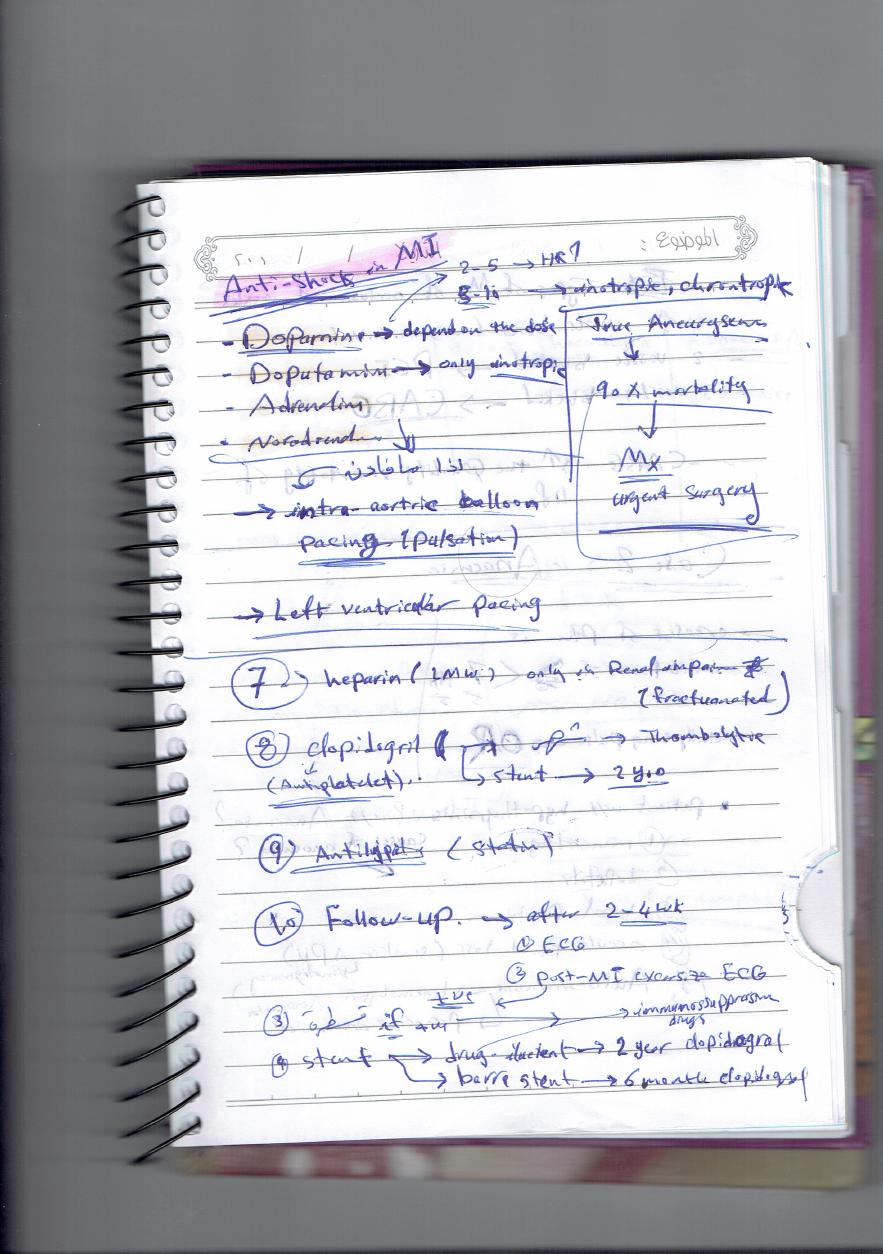 الموضوع :
/ / ٢٠٠
Anti-Shock in MI
2-5 → HR↑
8-10 → inotropic, chrontropic
- Dopamine → depend on the dose
- Doputamin → only inotropic
- Adrenalin
- Noradrenal
اذا مافادن
→ intra-aortric balloon
pacing (pulsation)
→ Left ventricular pacing
True Aneurysm
↓
90% mortality
↓
Mx
urgent surgery
7) heparin (LMW) only in Renal impair
(fractuanated)
8) clopidogril → Thrombolytic
(Antiplatelet) ↳ stent → 2 y
9) (statin)
10) Follow-up. → after 2-4 wk
① ECG
② post-MI exersize ECG
+ve
③ if +ve → immunossuppressive
drugs
④ stent → drug → 2 year clopidogral
→ barre stent → 6 month clopidogral